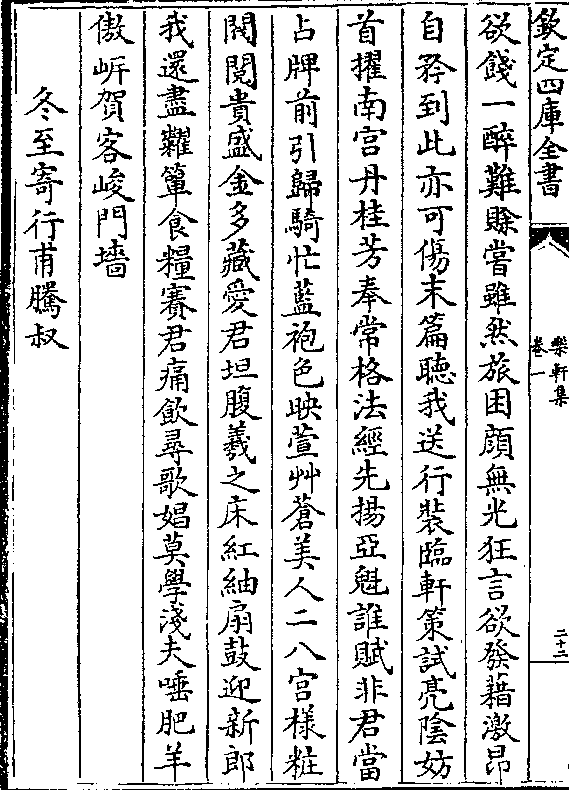 欽定四庫全書
樂軒集
卷一
二十二
欲餞一醉難賖嘗雖然旅困顔無光狂言欲發藉激昂
自矜到此亦可傷末篇聽我送行裝臨軒策試亮陰妨
首擢南宫丹桂芳奉常格法經先揚亞魁誰賦非君當
占牌前引歸騎忙藍袍色映萱艸蒼美人二八宫様粧
閥閲貴盛金多藏愛君坦腹羲之床紅紬扇鼓迎新郎
我還盡糶簞食糧賽君痛飲尋歌娼莫學淺夫唾肥羊
傲岓賀客峻門墻
冬至寄行甫騰叔